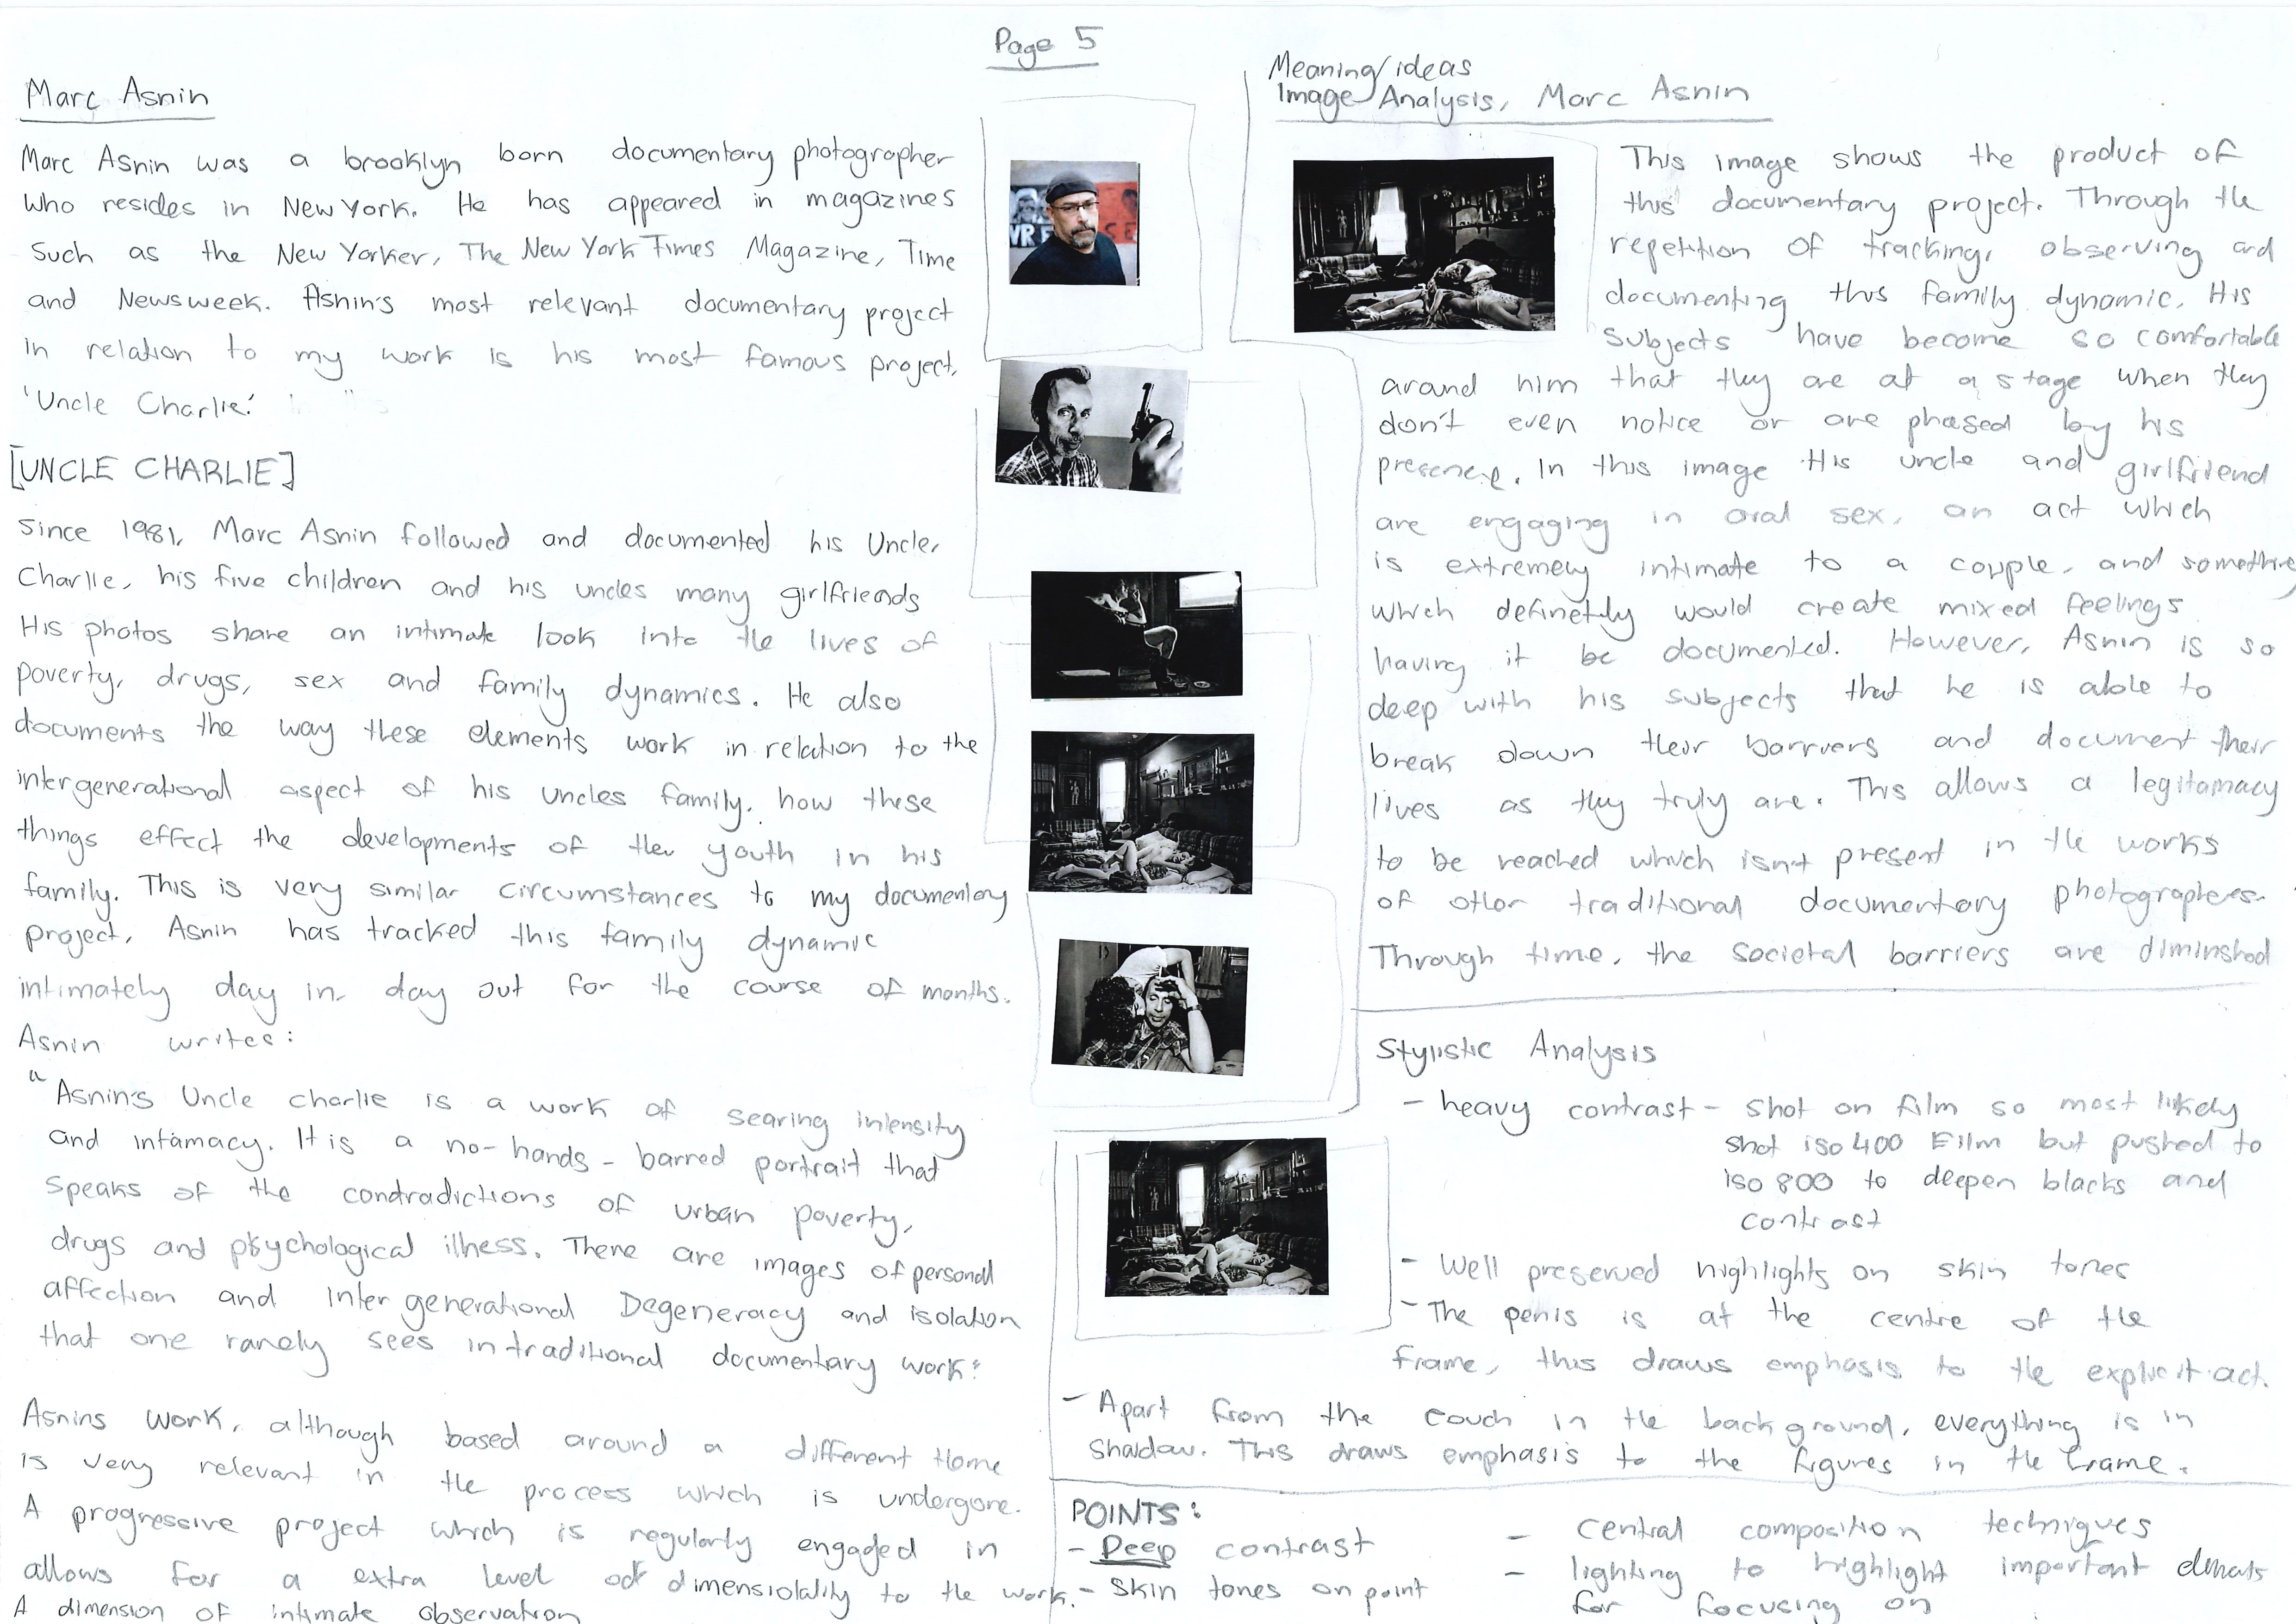 Page 5
Marc Asnin
Marc Asnin was a brooklyn born documentary photographer
who resides in New York. He has appeared in magazines
such as the New Yorker, The New York Times Magazine, Time
and Newsweek. Asnin's most relevant documentary project
in relation to my work is his most famous project,
'Uncle Charlie'.
[UNCLE CHARLIE]
Since 1981, Marc Asnin followed and documented his Uncle,
Charlie, his five children and his uncles many girlfriends
His photos share an intimate look into the lives of
poverty, drugs, sex and family dynamics. He also
documents the way these elements work in relation to the
intergenerational aspect of his uncles family. how these
things effect the developments of the youth in his
family. This is very similar circumstances to my documentary
project, Asnin has tracked this family dynamic
intimately day in, day out for the course of months.
Asnin writes:
"Asnin's Uncle charlie is a work of searing intensity
and intamacy. It is a no-hands-barred portrait that
speaks of the contradictions of urban poverty,
drugs and psychological illness. There are images of personal
affection and intergenerational Degeneracy and isolation
that one rarely sees in traditional documentary work"
Asnins work, although based around a different theme
is very relevant in the process which is undergone.
A progressive project which is regularly engaged in
allows for a extra level of dimensiolality to the work.
A dimension of intimate observation
Meaning/ideas
Image Analysis, Marc Asnin
This image shows the product of
this documentary project. Through the
repetition of tracking, observing and
documenting this family dynamic. His
subjects have become so comfortable
around him that they are at a stage when they
don't even notice or are phased by his
presence. In this image His uncle and girlfriend
are engaging in oral sex, an act which
is extremely intimate to a couple, and something
which definetely would create mixed feelings
having it be documented. However, Asnin is so
deep with his subjects that he is able to
break down their barriers and document their
lives as they truly are. This allows a legitamacy
to be reached which isn't present in the works
of other traditional documentary photographers.
Through time, the societal barriers are diminshed
Stylistic Analysis
- heavy contrast - shot on film so most likely
shot iso 400 Film but pushed to
iso 800 to deepen blacks and
contrast
- Well preserved highlights on skin tones
- The penis is at the centre of the
frame, this draws emphasis to the explicit act.
- Apart from the couch in the background, everything is in
shadow. This draws emphasis to the figures in the frame.
POINTS:
- Deep contrast
- Skin tones on point
- Central composition techniques
- lighting to highlight important elements
for focusing on